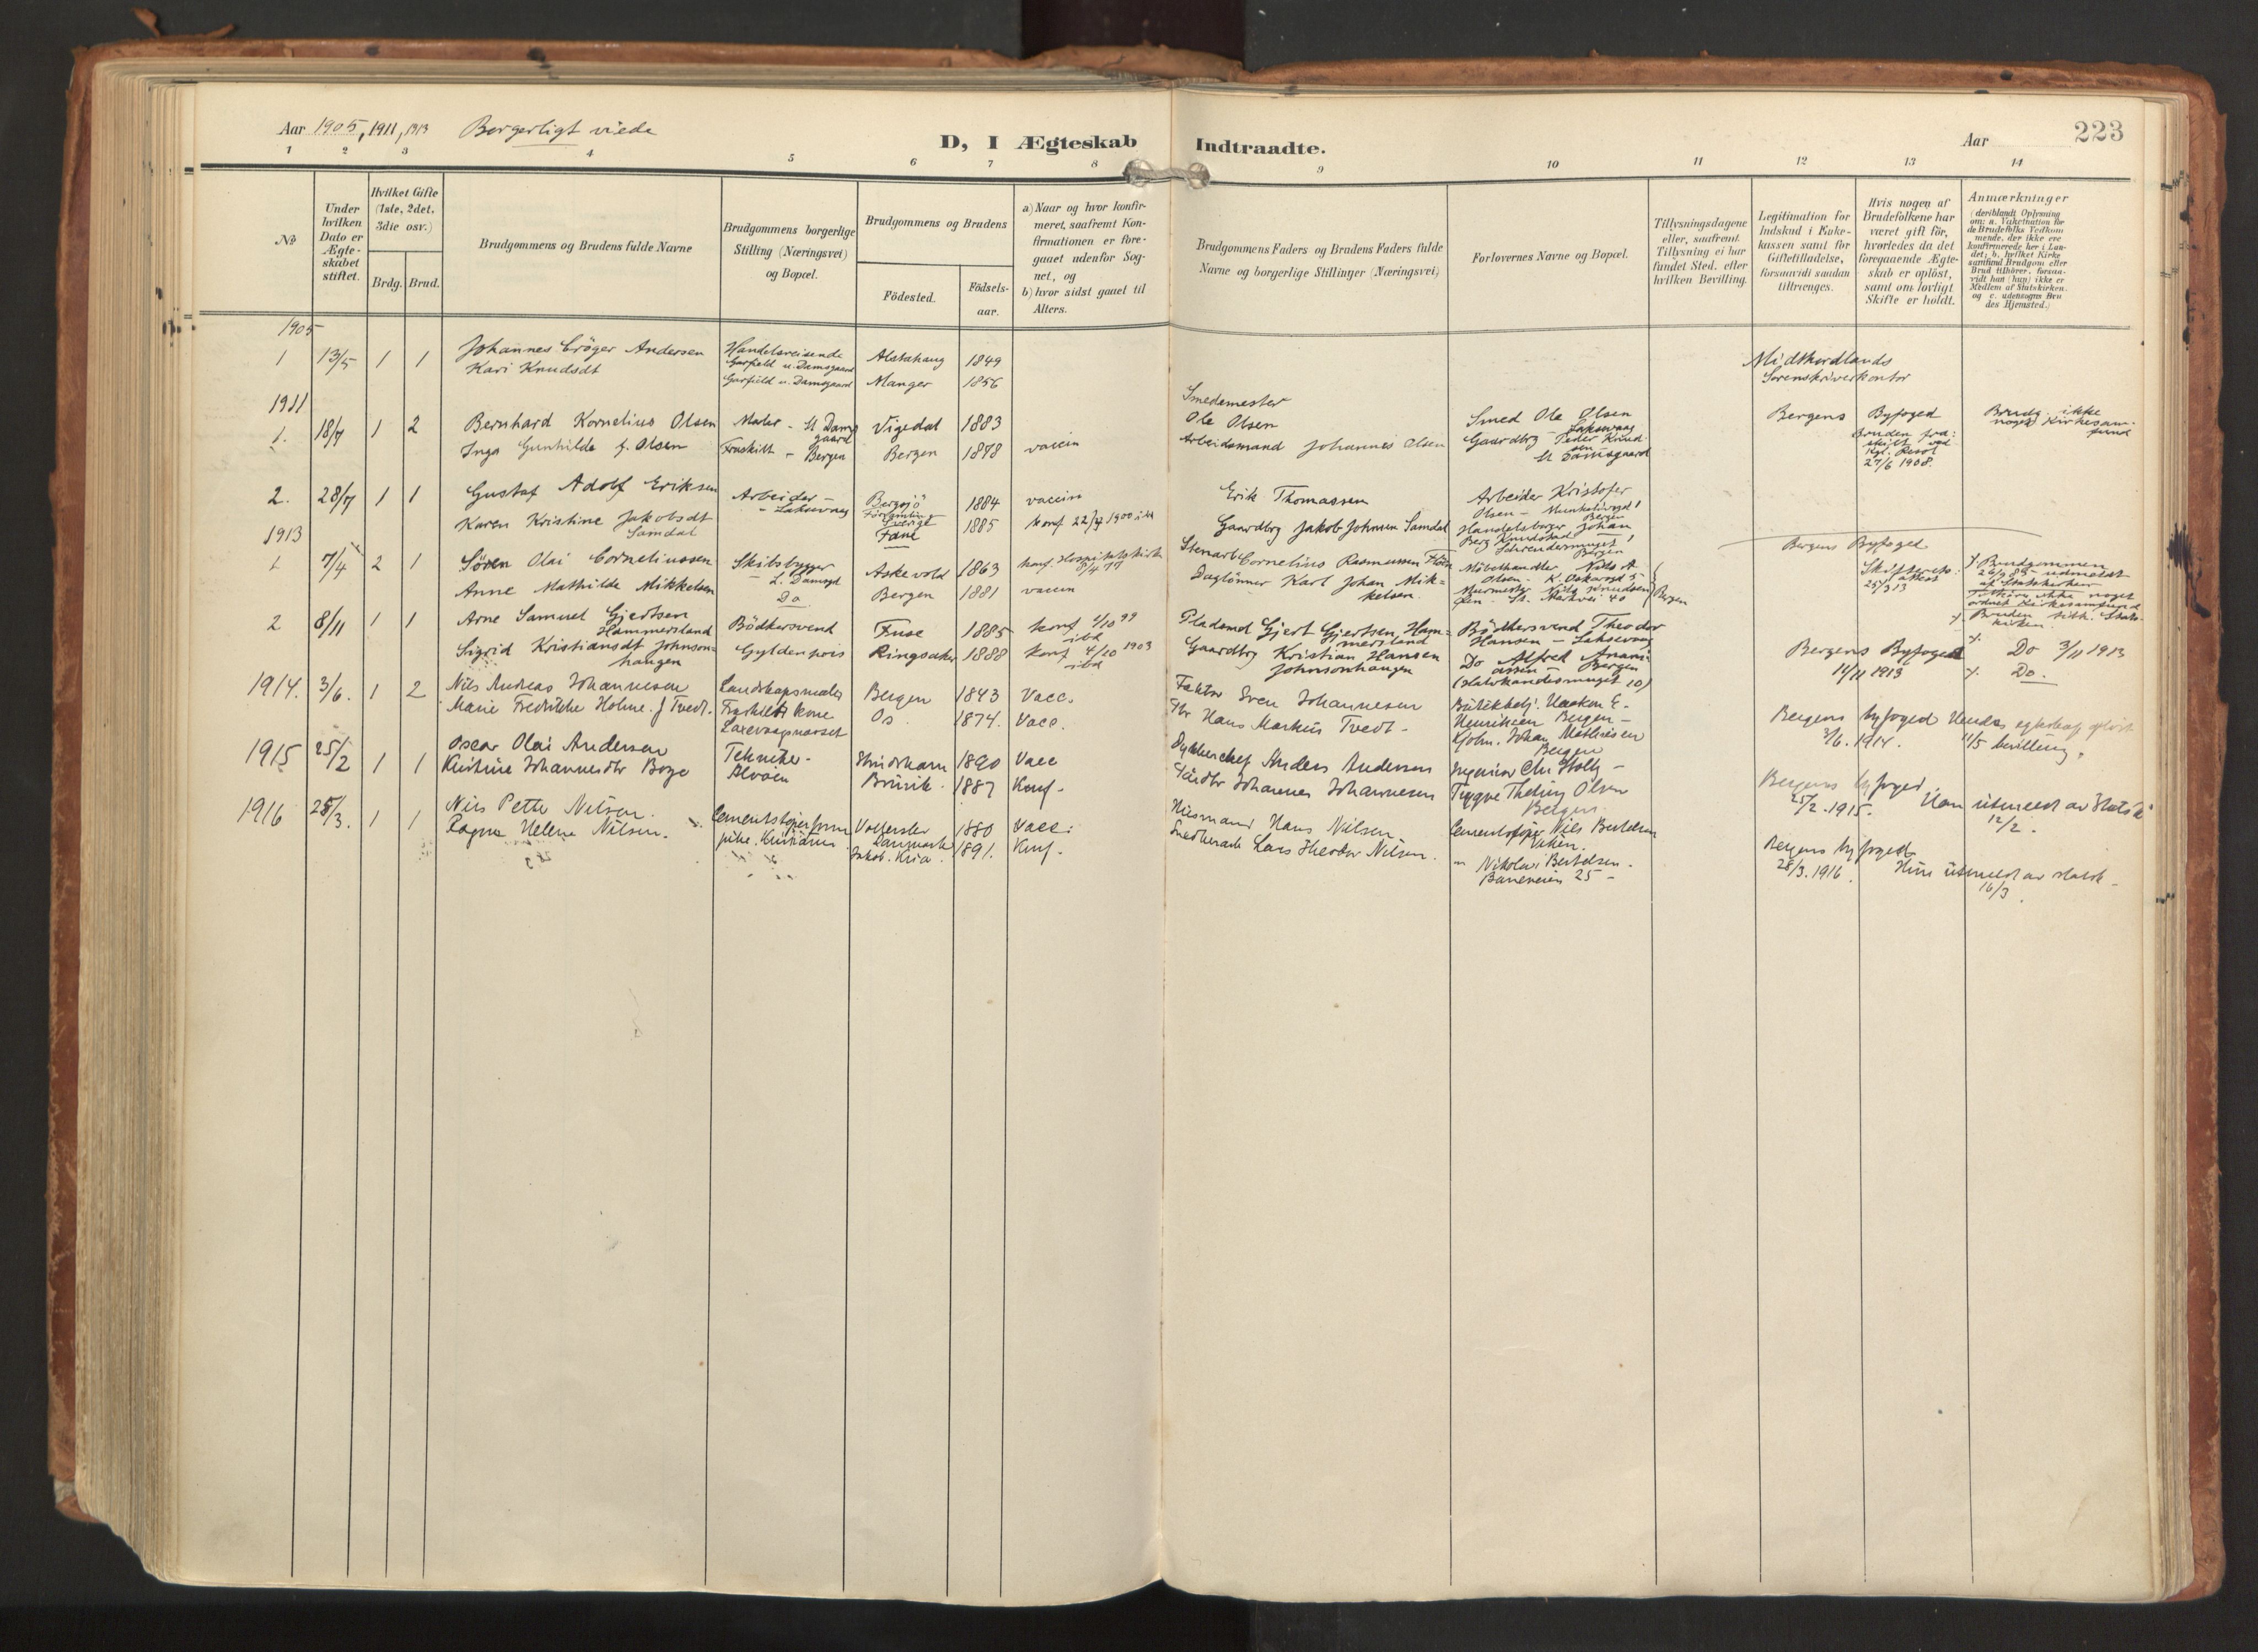 Aar 1905, 1911, 1913 Borgerligt viede
D, I Ægteskab Indtraadte.
Aar 223
1 2 3 4 5 6 7 8 9 10 11 12 13 14
No
Under hvilken Dato er Ægteskabet stiftet.
Hvilket Gifte (1ste, 2det, 3die osv.)
Brdg. Brud.
Brudgommens og Brudens fulde Navne
Brudgommens borgerlige Stilling (Næringsvei) og Bopæl.
Brudgommens og Brudens
Födested. Födselsaar.
a) Naar og hvor konfirmeret, saafremt Konfirmationen er foregaaet udenfor Sognet, og
b) hvor sidst gaaet til Alters.
Brudgommens Faders og Brudens Faders fulde Navne og borgerlige Stillinger (Næringsvei)
Forlovernes Navne og Bopæl.
Tillysningsdagene eller, saafremt Tillysning ei har fundet Sted, efter hvilken Bevilling.
Legitimation for Indskud i Enkekassen samt for Giftetilladelse, forsaavidt saadan tiltrænges.
Hvis nogen af Brudefolkene har været gift för, hvorledes da det foregaaende Ægteskab er oplöst, samt om lovligt Skifte er holdt.
Anmærkninger
(deriblandt Oplysning om: a. Vakcination for de Brudefolks Vedkommende, der ikke ere konfirmerede her i Landet; b. hvilket Kirkesamfund Brudgom eller Brud tilhörer, forsaavidt han (hun) ikke er Medlem af Statskirken, og c. udensogns Brudes Hjemsted.)
1905
1 13/5 1 1 Johannes Cröger Andersen Handelsreisende Garfield u. Damsgaard Alstahaug 1849
Kari Knudsdt Garfield u. Damsgaard Manger 1856
Midthordlands
Sorenskriverkontor
1911
1. 18/7 1 2 Bernhard Kornelius Olsen Maler - St Damsgaard Vigedal 1883
Smedemester
Ole Olsen
Smed Ole Olsen - Laksevaag
Bergens Byfoged
Brudg. ikke noget Kirkesamfund
Inga Gunhilde f. Olsen Fraskilt - Bergen Bergen 1878 vaccin
Arbeidsmand Johannes Olsen
Gaardbrg Peder Knudsen St Damsgaard
Bruden fraskilt ved Kgl. Resol 27/6 1908.
2. 28/7 1 1 Gustaf Adolf Eriksen Arbeider - Laksevaag Bergsjö Församling Sverige 1884 vaccin
Erik Thomassen
Arbeider Kristofer Olsen - Bergen
Karen Kristine Jakobsdt Samdal Fane 1885 konf 1900
Gaardbrg Jakob Johnsen Samdal
Handelsborger Johan Berg Knudstad Bergen
1913
1 7/4 2 1 Søren Olai Corneliussen Skibsbygger L. Damsgd Askevold 1863 konf. Hospitalskirk 8/4 77
Stenarb Cornelius Rasmussen
Möbelhandler Nils A. Olsen -
Bergens Byfoged
Anne Mathilde Mikkelsen Do Bergen 1881 vaccin
Daglönner Karl Johan Mikkelsen
Murmester Nils Knudsen 40 Bergen
25/3 13
Brudgommen udmeldt af Statskirken
Bruden tilh. Statskirken
2 8/11 1 1 Arne Samuel Gjertsen Hammersland Bödkersvend Fuse 1885 konf 1/10 99
Pladsmd Gjert Gjertsen Hammersland
Bödkersvend Theodor Hansen - Laksevaag
Bergens Byfoged 11/11 1913
Do 3/11 1913
Sigrid Kristiansdt Johnsonhaugen Gyldenpris Ringsaker 1888 konf 4/10 1903
Gaardbrg Kristian Hansen Johnsonhaugen
Do Alfred Ananiassen - Bergen
Do.
1914. 3/6. 1 2 Nils Andreas Johannesen Landskapsmaler Bergen 1843 Vacc.
Faktor Sven Johannesen
Butikkholj. Haakon E. Henriksen Bergen -
Marie Fredrikke Holme. f Tvedt. Fraskilt kone Laxevaagnæset Os 1874. Vacc.
Hans Markus Tvedt -
Kjøbm. Johan Mathiesen Bergen
Bergens byfoged 3/6. 1914.
11/5 bevilling.
1915 25/2 1 1 Oscar Olai Andersen Tekniker - Alvøen 1890 Vacc
Dykkerchef Anders Andersen
Ingeniør Chr Holtz -
Kristine Johannesdtr Børge Bruvik 1887 Konf.
Johannes Johannesen
Trygve Olsen Bergen.
Bergens byfoged 25/2. 1915.
Han utmeldt av Statsk 12/2.
1916 28/3. 1 1 Nils Petter Nilsen. Danmark 1880 Vacc.
Husmand Hans Nilsen.
Cementstøper Nils Bertelsen
Ragna Helene Nilsen. Jakob. Kria. 1891. Konf.
Lars Theodor Nilsen.
Nikolai Bertelsen.
Baneveien 25 -
Bergens byfoged
28/3. 1916.
Hun utmeldt av statsk -
16/3.